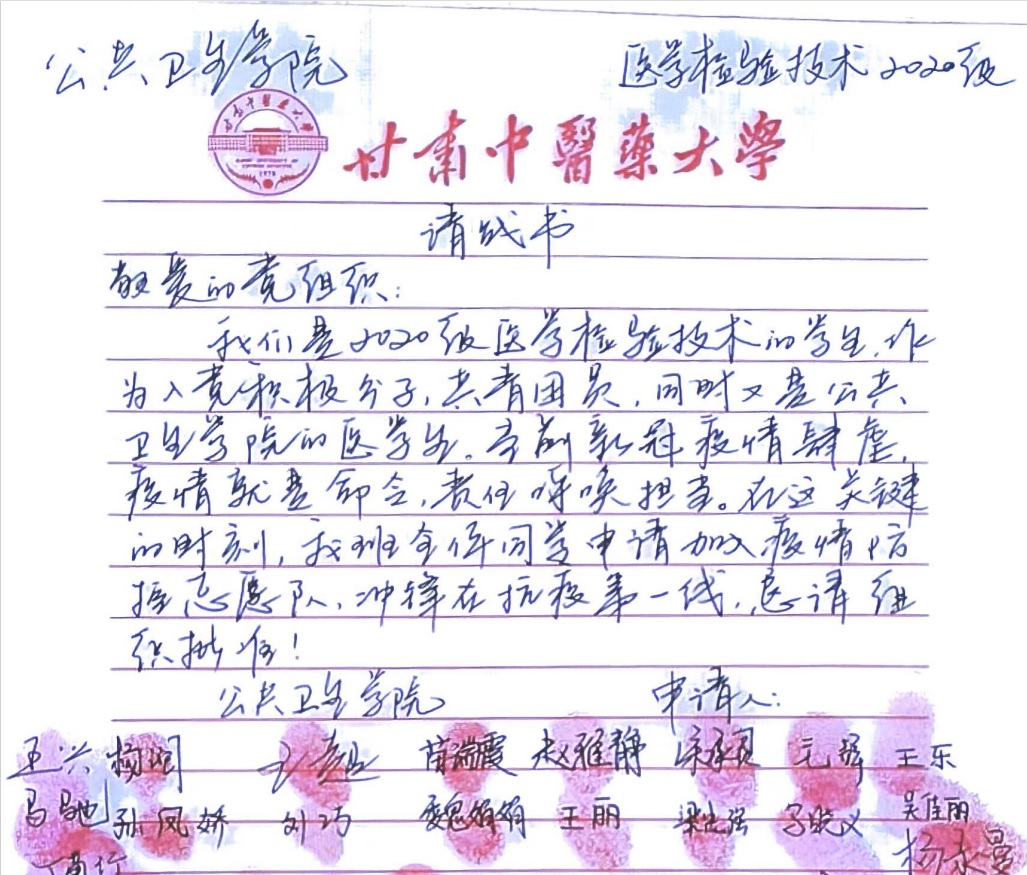 公共卫生学院 医学检验技术2020级
甘肃中醫藥大學
1978
请战书
敬爱的党组织:
我们是2020级医学检验技术的学生,作
为入党积极分子,共青团员,同时又是公共
卫生学院的医学生。当前新冠疫情肆虐,
疫情就是命令,责任呼唤担当。在这关键
的时刻,我班全体同学申请加入疫情防
控志愿队,冲锋在抗疫第一线,恳请组
织批准!
公共卫生学院 申请人:
王兴 杨娟 苗瑞霞 赵雅静 王乐
马驰 孙凤娇 刘巧 魏娟娟 王丽 梁志强 吴佳丽
杨永曼